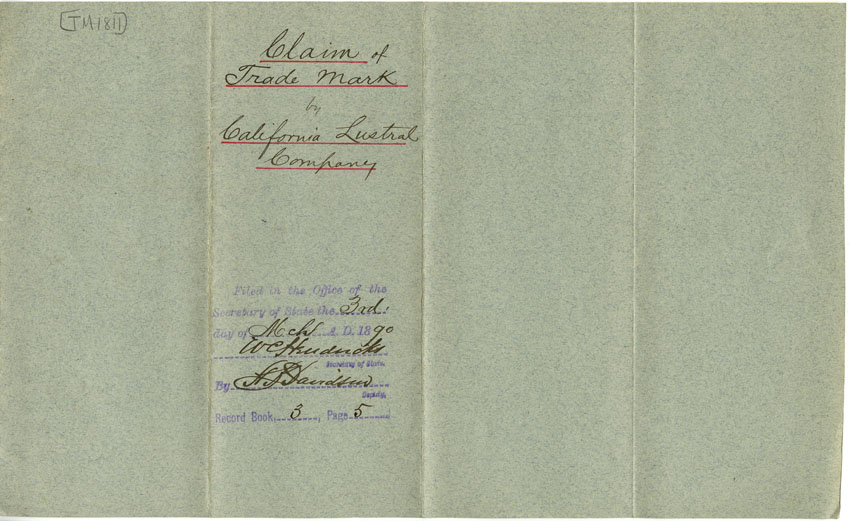 [TM1811]
Claim of
Trade Mark
by
California Lustral
Company
Filed in the Office of the
Secretary of State the 3rd.
day of Mch A. D. 1890
W C Hendricks
Secretary of State.
By Davidson
Deputy.
Record Book 3, Page 5